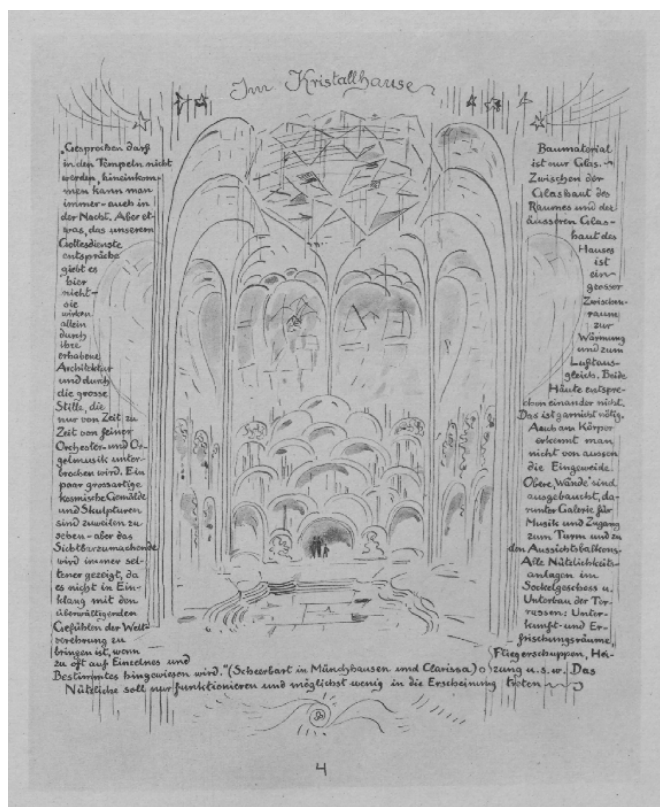 Im Kristallhause
„Gesprochen darf
in den Tempeln nicht
werden, hineinkom-
men kann man
immer – auch in
der Nacht. Aber et-
was, das unserem
Gottesdienste
entspräche
giebt es
hier
nicht –
sie
wirken
allein
durch
ihre
erhabene
Architektur
und durch
die grosse
Stille, die
nur von Zeit zu
Zeit von feiner
Orchester- und Or-
gelmusik unter-
brochen wird. Ein
paar grossartige
kosmische Gemälde
und Skulpturen
sind zuweilen zu
sehen – aber das
Sichtbarzumachende
wird immer sel-
tener gezeigt, da
es nicht in Ein-
klang mit den
überwältigenden
Gefühlen der Welt-
verehrung zu
bringen ist, wenn
zu oft auf Einzelnes und
Bestimmtes hingewiesen wird." (Scheerbart in Münchhausen und Clarissa)
Baumaterial
ist nur Glas. –
Zwischen der
Glashaut des
Raumes und der
äusseren Glas-
haut des
Hauses
ist
ein
grosser
Zwischen-
raum
zur
Wärmung
und zum
Luftaus-
gleich. Beide
Häute entspre-
chen einander nicht.
Das ist garnicht nötig.
Auch am Körper
erkennt man
nicht von aussen
die Eingeweide.
Obere „Wände" sind
ausgebaucht, da-
runter Galerie für
Musik und Zugang
zum Turm und zu
den Aussichtsbalkons.
Alle Nützlichkeits-
anlagen im
Sockelgeschoss u.
Unterbau der Ter-
rassen: Unter-
kunft- und Er-
frischungsräume,
Fliegerschuppen, Hei-
zung u.s.w. Das
Nützliche soll nur funktionieren und möglichst wenig in die Erscheinung treten
4